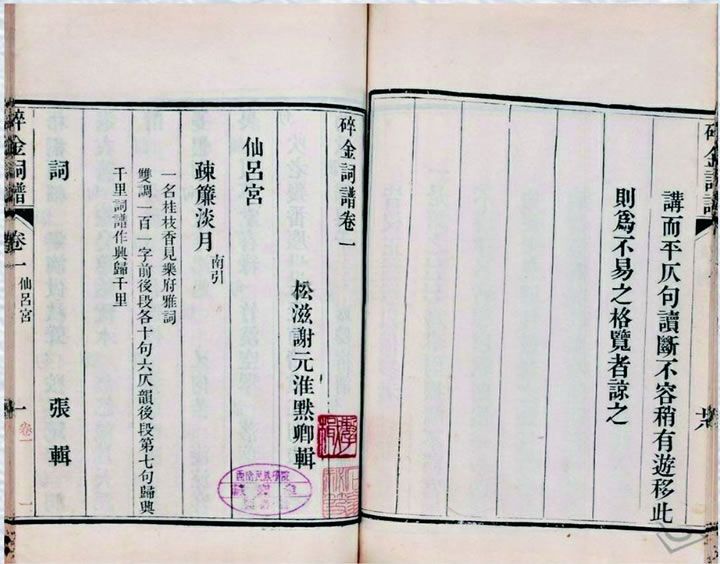 碎金詞譜
講而平仄句讀斷不容稍有遊移此
則爲不易之格覽者諒之
碎金詞譜卷一
松滋謝元淮默卿輯
仙呂宮
疎簾淡月 南引
一名桂枝香見樂府雅詞
雙調一百一字前後段各十句六仄韻後段第七句歸興
千里詞譜作興歸千里
詞 張輯
碎金詞譜 卷一 仙呂宮 一
卷一
西南民族學院